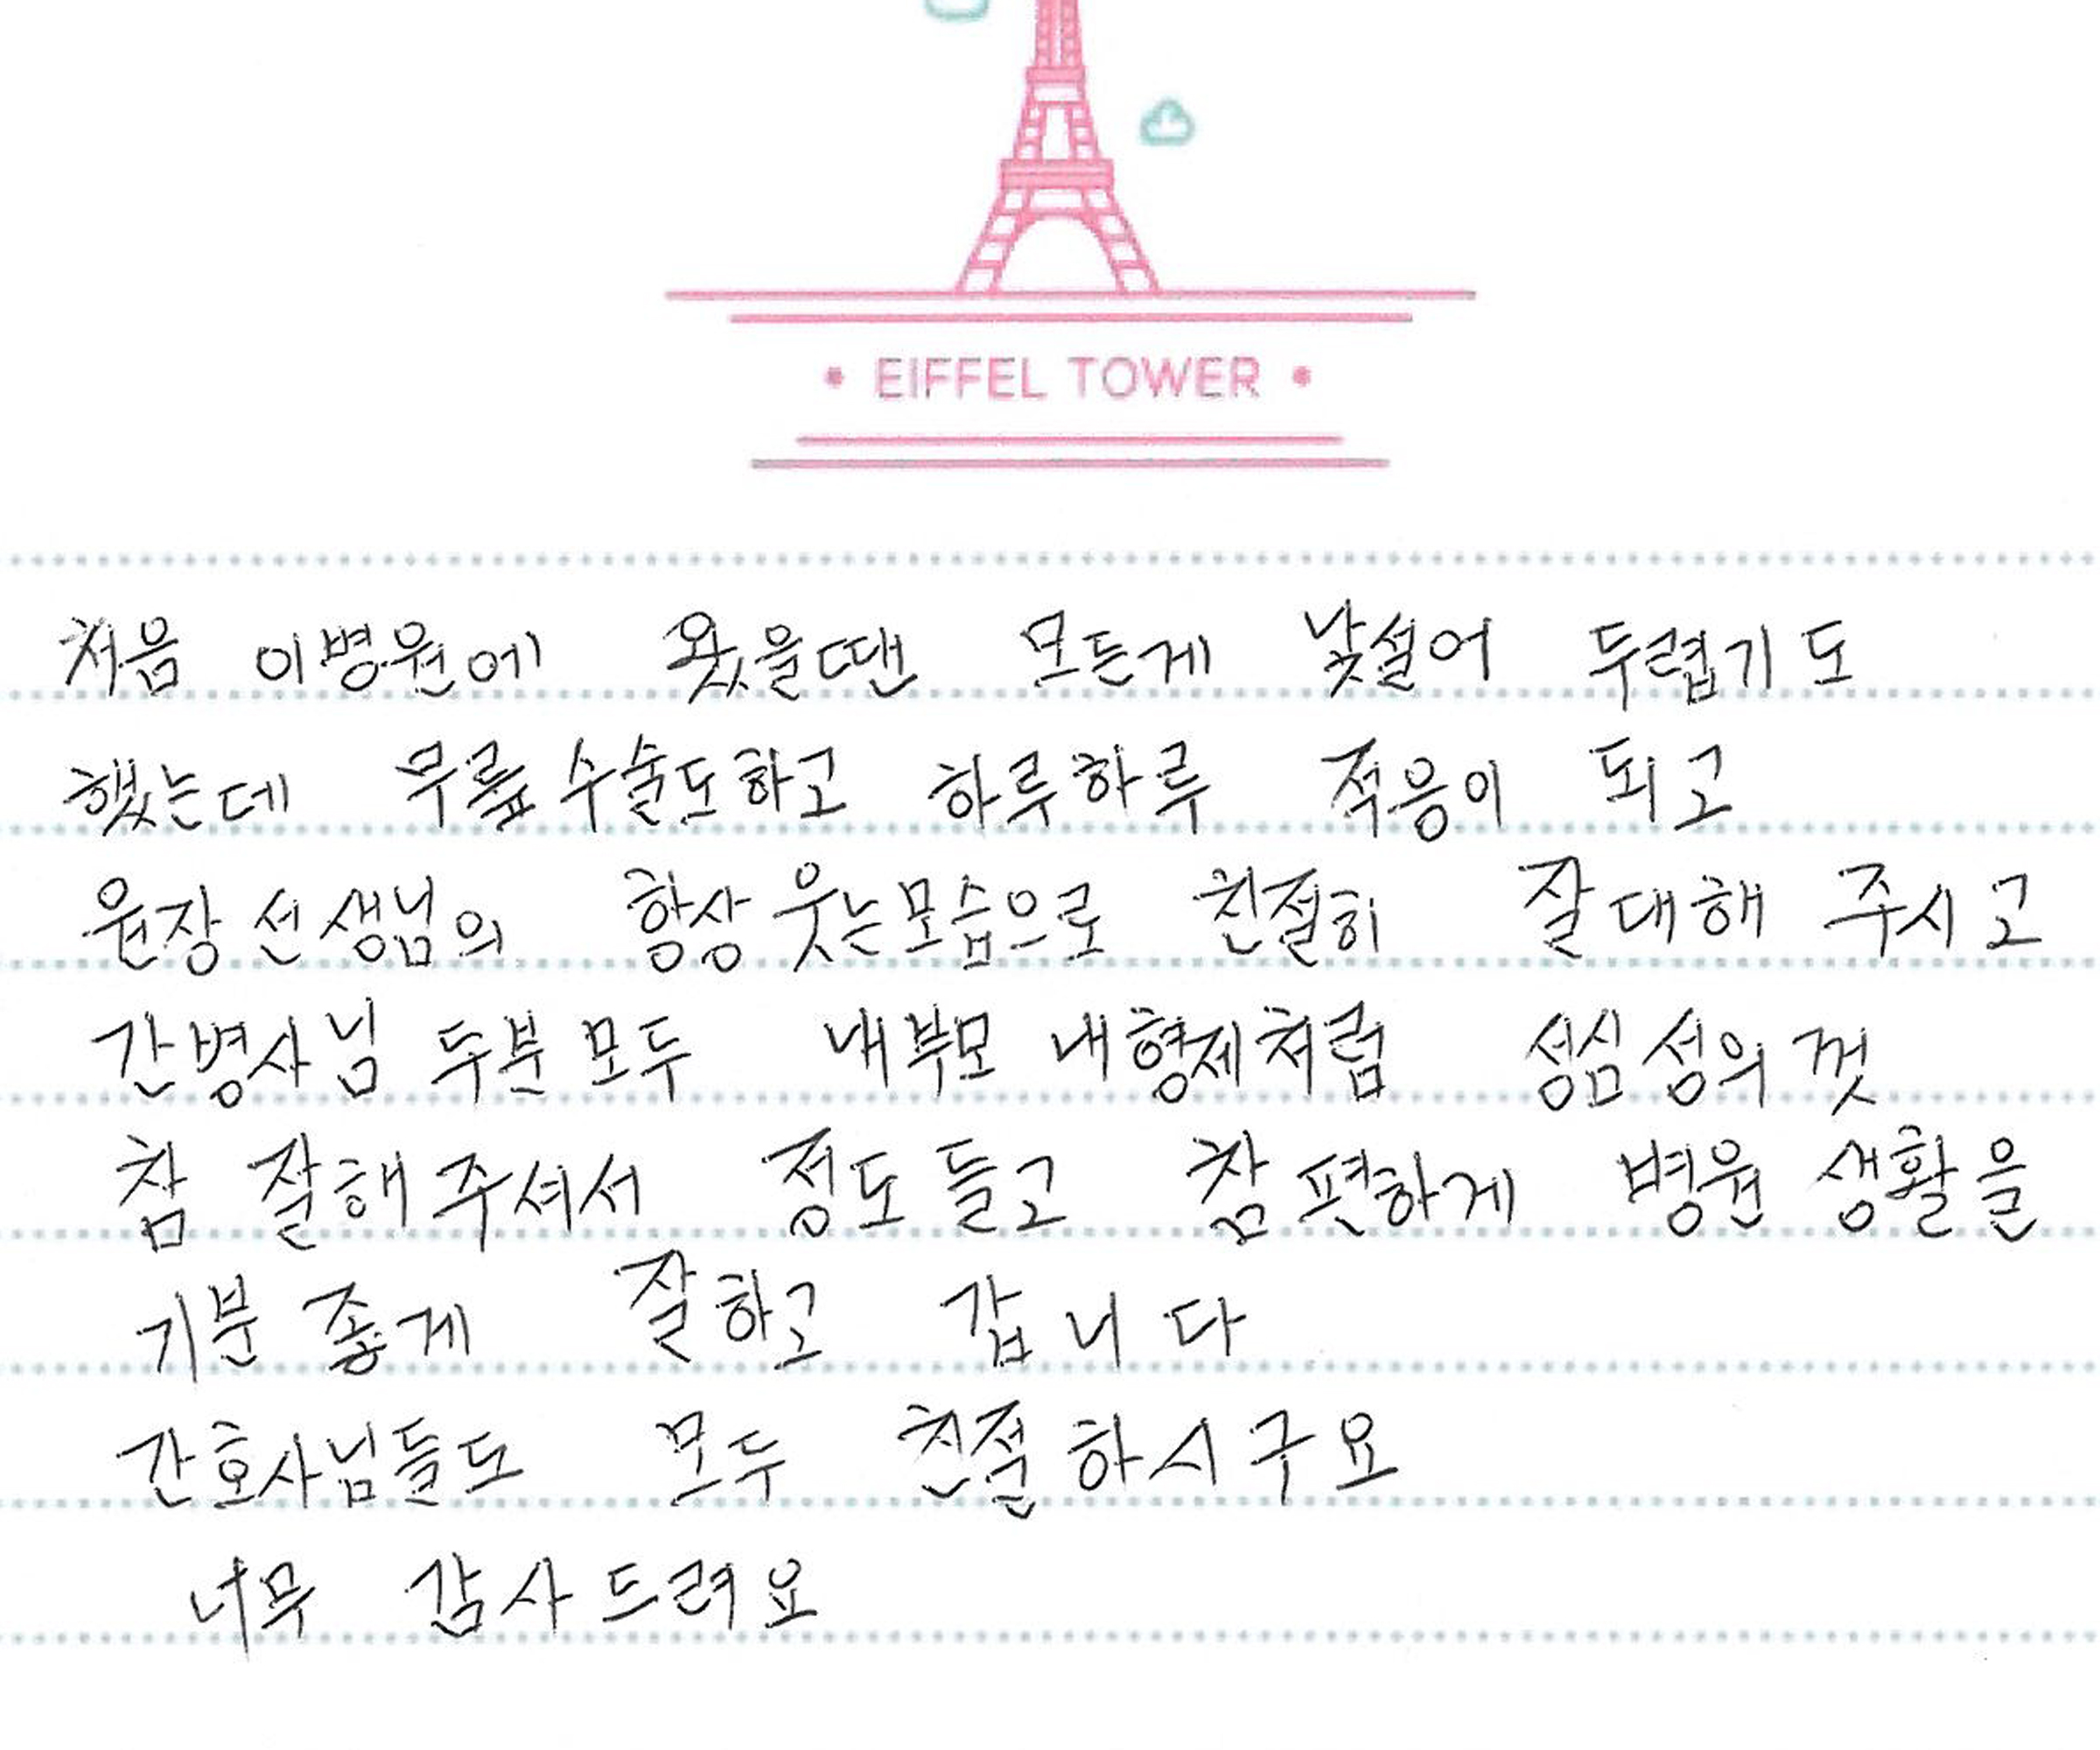 • EIFFEL TOWER •
처음 이병원에 왔을땐 모든게 낯설어 두렵기도
했는데 무릎수술도하고 하루하루 적응이 되고
원장선생님의 항상웃는모습으로 친절히 잘대해 주시고
간병사님 두분모두 내부모 내형제처럼 성심성의껏
참 잘해주셔서 정도들고 참편하게 병원생활을
기분좋게 잘하고 갑니다
간호사님들도 모두 친절하시구요
너무 감사드려요